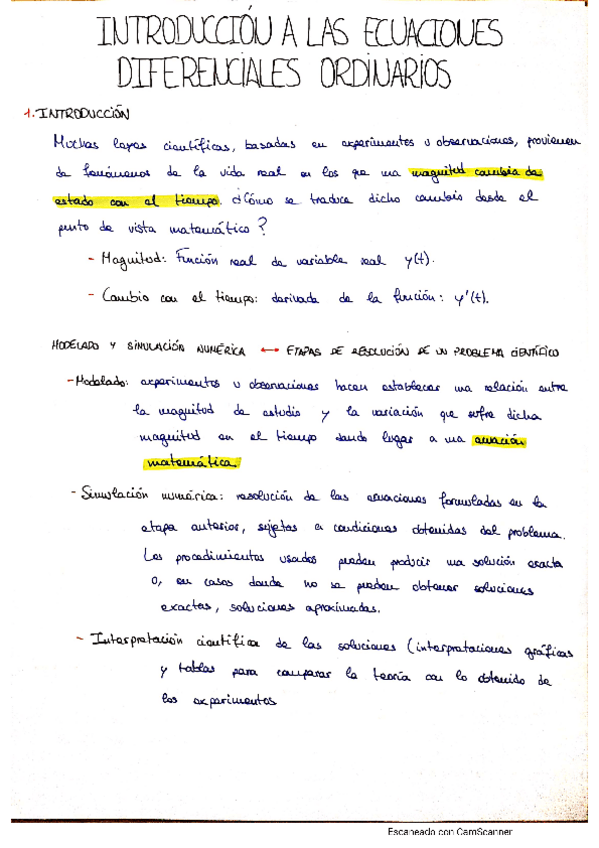 INTRODUCCIÓN A LAS ECUACIONES
DIFERENCIALES ORDINARIOS
1. INTRODUCCIÓN
Muchas leyes científicas, basadas en experimentos u observaciones, provienen
de fenómenos de la vida real en los que una magnitud cambia de
estado con el tiempo. ¿Cómo se traduce dicho cambio desde el
punto de vista matemático?
- Magnitud: Función real de variable real y(t).
- Cambio con el tiempo: derivada de la función: y'(t).
MODELADO Y SIMULACIÓN NUMÉRICA ↔ ETAPAS DE RESOLUCIÓN DE UN PROBLEMA CIENTÍFICO
- Modelado: experimentos u observaciones hacen establecer una relación entre
la magnitud de estudio y la variación que sufre dicha
magnitud en el tiempo dando lugar a una ecuación
matemática.
- Simulación numérica: resolución de las ecuaciones formuladas en la
etapa anterior, sujetas a condiciones obtenidas del problema.
Los procedimientos usados pueden producir una solución exacta
o, en casos donde no se pueden obtener soluciones
exactas, soluciones aproximadas.
- Interpretación científica de las soluciones (interpretaciones gráficas
y tablas para comparar la teoría con lo obtenido de
los experimentos
Escaneado con CamScanner